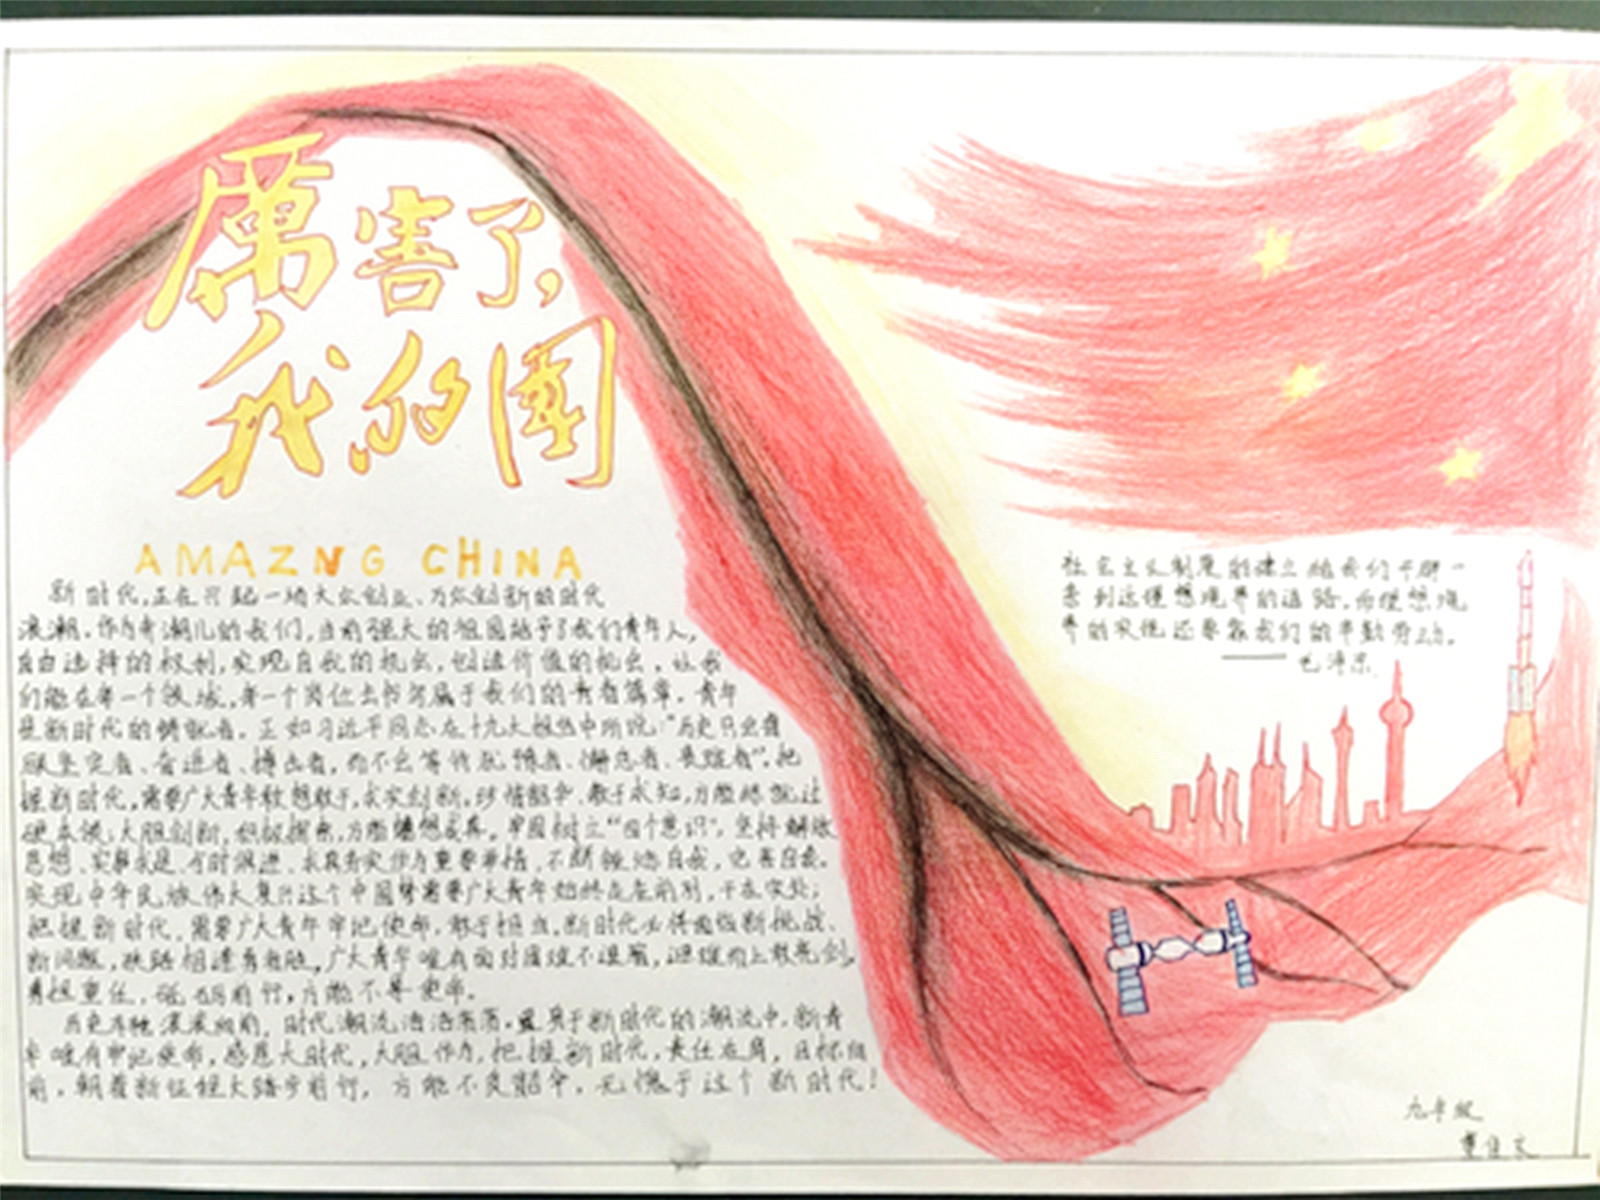 厲害了,
我的國
AMAZNG CHINA
新时代,正在兴起一场大众创业、万众创新的时代
浪潮。作为弄潮儿的我们,当前强大的祖国给予了我们青年人,
自由选择的权利,实现自我的机会,创造价值的机会。让我
们能在每一个领域,每一个岗位去书写属于我们的青春篇章。青年
是新时代的 者。正如习近平同志在十九大报告中所说:"历史只会眷
顾坚定者、奋进者、搏击者,而不会等待犹豫者、懈怠者、畏难者"。把
握新时代,需要广大青年敢想敢干,求实创新,珍惜韶华、敢于求知,方能练就过
硬本领;大胆创新,积极探索,方能 想成真。牢固树立"四个意识",坚持解放
思想、实事求是、与时俱进、求真务实作为重要 ,不断锻造自我,完善自我。
实现中华民族伟大复兴这个中国梦需要广大青年始终走在前列,干在实处;
把握新时代,需要广大青年牢记使命,敢于担当,新时代必将面临新挑战、
新问题,狭路相逢勇者胜,广大青年唯有面对困难不退缩,迎难而上敢亮剑,
勇担重任,砥砺前行,方能不辱使命。
历史车轮滚滚向前,时代潮流浩浩荡荡。置身于新时代的潮流中,新青
年唯有牢记使命,感恩大时代,大胆作为,把握新时代,责任在肩,目标在
前,朝着新征程大踏步前行,方能不负韶华,无愧于这个新时代!
社会主义制度的建立给我们开辟一
条到达理想境界的道路,而理想境
界的实现还要靠我们的辛勤劳动。
——毛泽东
九年级